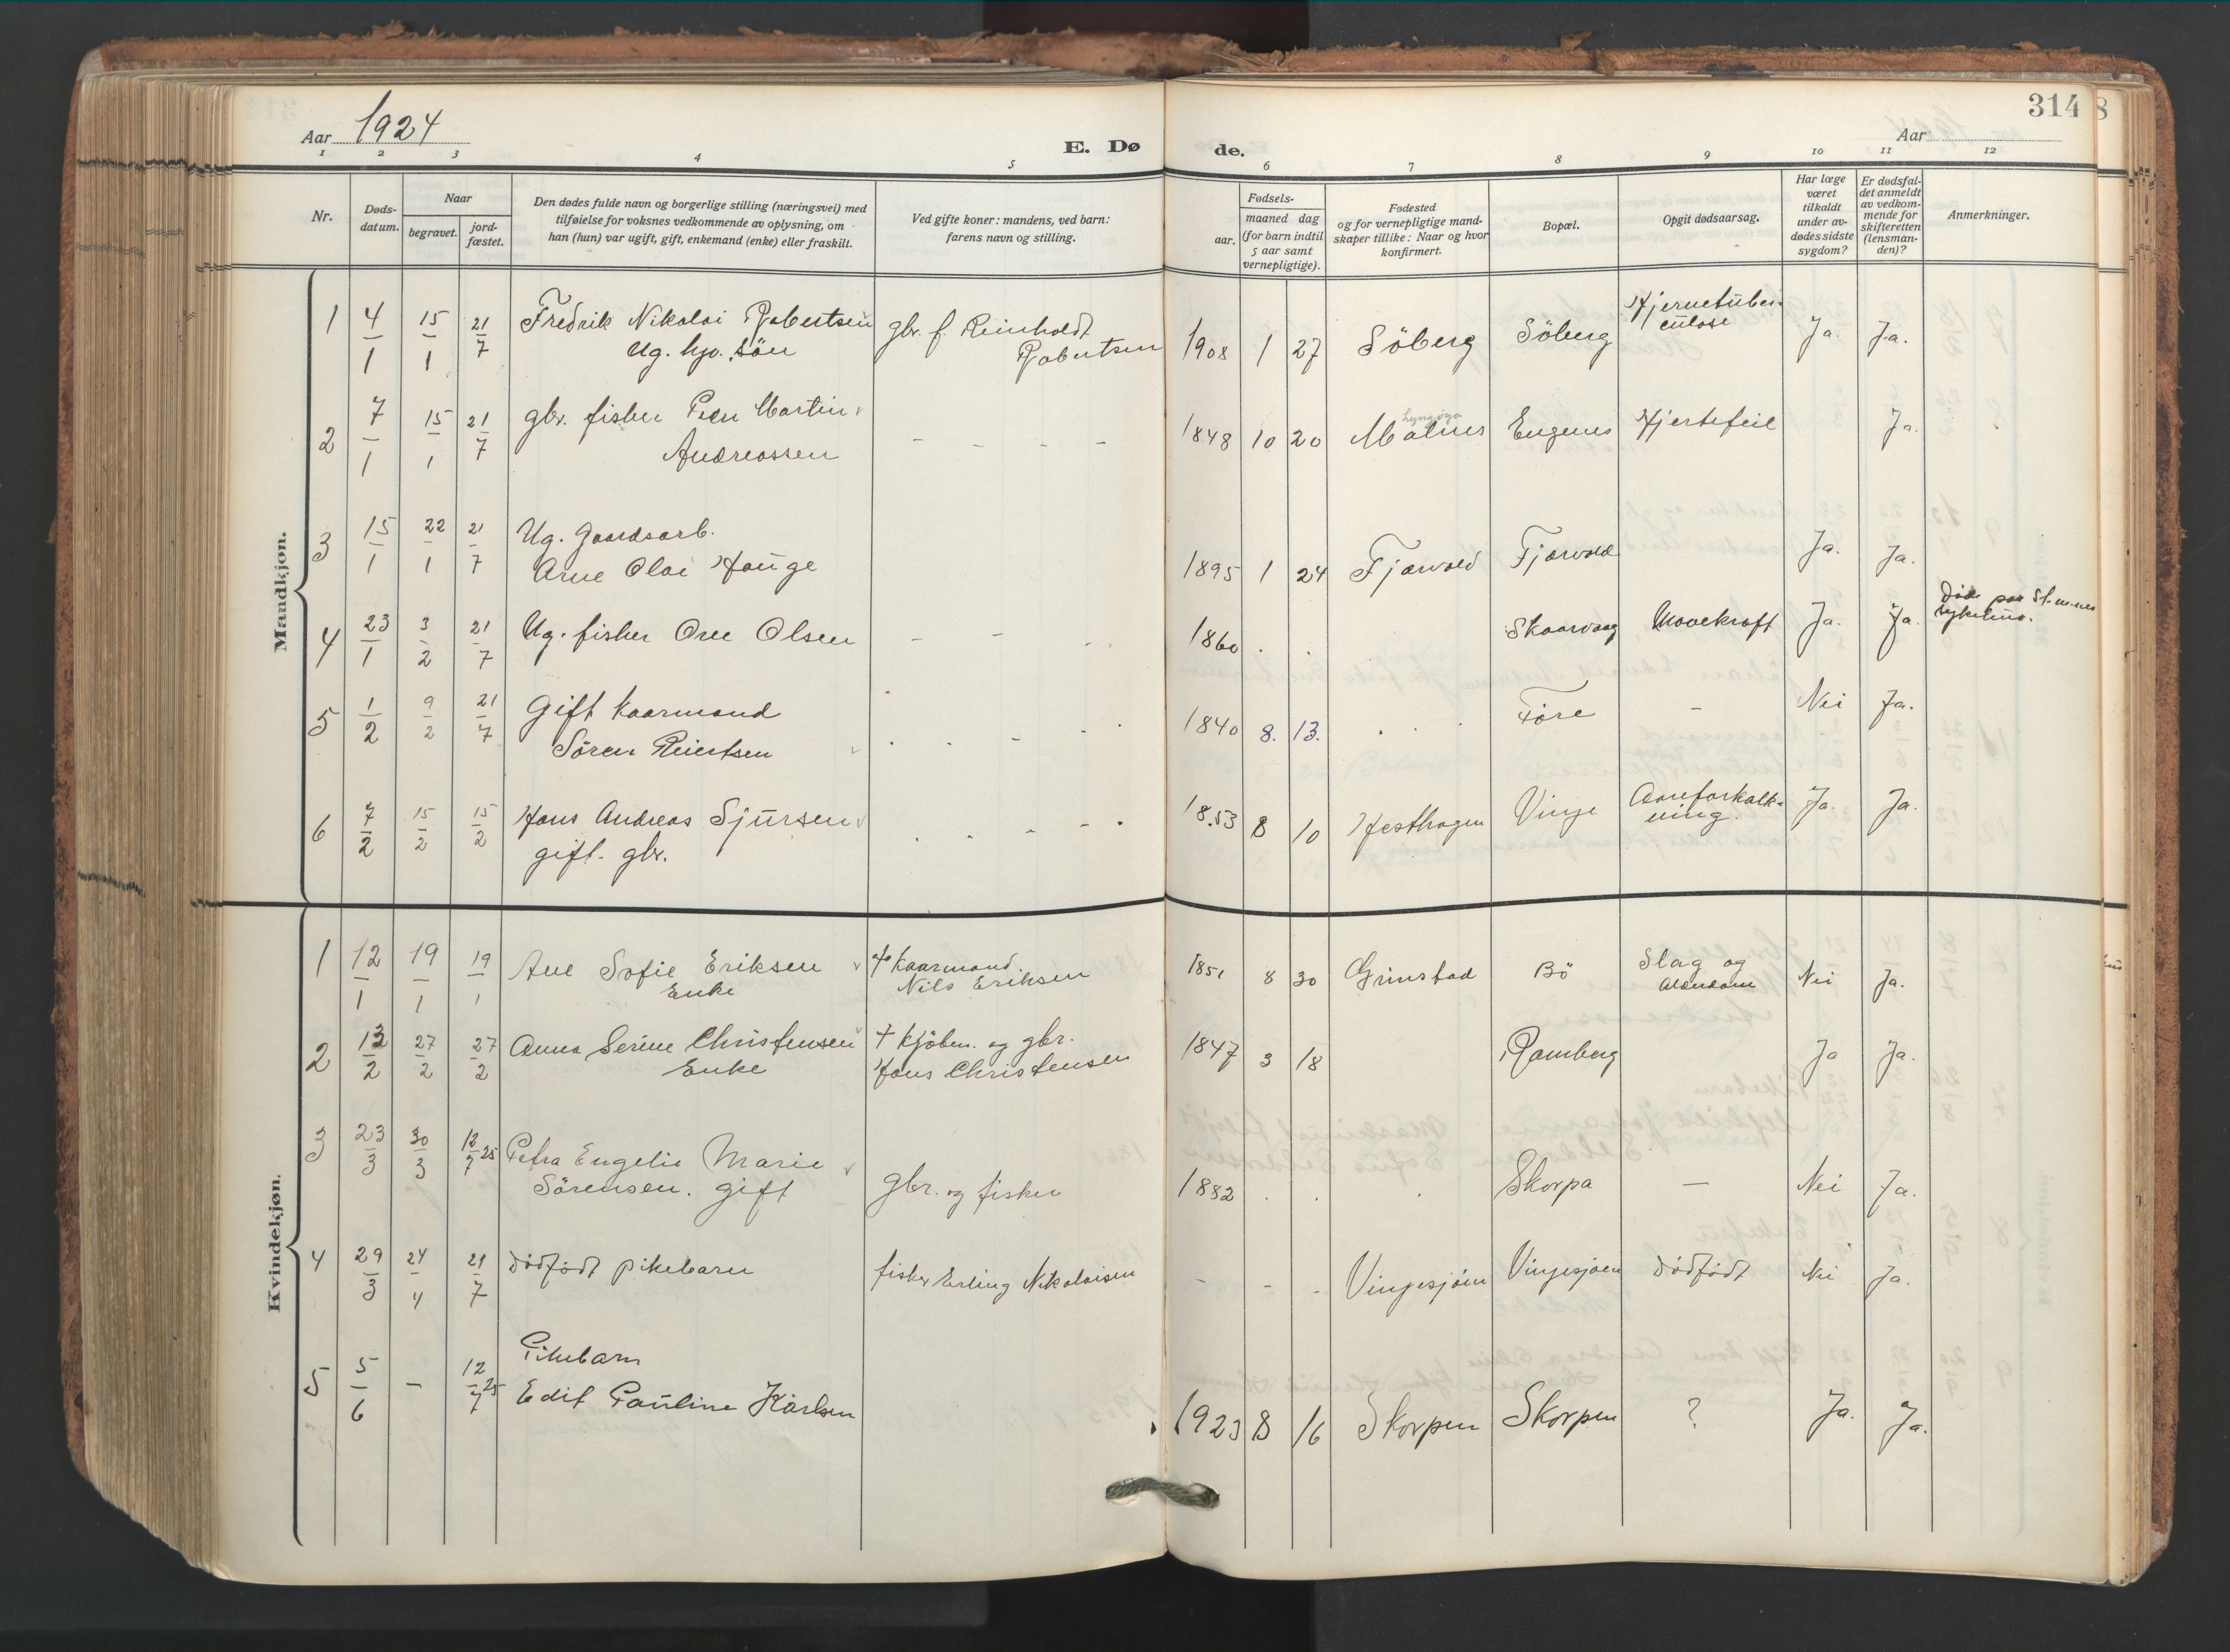 314
8
Aar 1924
E. Dø
de.
Aar
1 2 3 4 5 6 7 8 9 10 11 12
Nr.
Døds-
datum.
Naar
begravet.
jord-
fæstet.
Den dødes fulde navn og borgerlige stilling (næringsvei) med
tilføielse for voksnes vedkommende av oplysning, om
han (hun) var ugift, gift, enkemand (enke) eller fraskilt.
Ved gifte koner: mandens, ved barn:
farens navn og stilling.
Fødsels-
aar.
maaned dag
(for barn indtil
5 aar samt
vernepligtige).
Fødested
og for vernepligtige mand-
skaper tillike: Naar og hvor
konfirmert.
Bopæl.
Opgit dødsaarsag.
Har læge
været
tilkaldt
under av-
dødes sidste
sygdom?
Er dødsfal-
det anmeldt
av vedkom-
mende for
skifteretten
(lensman-
den)?
Anmerkninger.
Mandkjøn.
1 4/1 15/1 21/7 Fredrik Nikolai Robertsen gbr. f. Reinholdt 1908 1 27 Söberg Söberg Hjernetuber- Ja. Ja.
Ug. hjv. sön Robertsen culose
2 7/1 15/1 21/7 gbr. fisker Peder Martin - - - - 1848 10 20 Malnes Engenes Hjertefeil Ja.
Andreassen
3 15/1 22/1 21/7 Ug. Gaardsarb.
Arne Olai Hauge 1895 1 24 Fjærvold Fjærvold Ja. Ja.
4 23/1 3/2 21/7 Ug. fisker Ole Olsen - - - 1860 . . Skaarvaag Mavekræft Ja. Ja. Død paa
sykehus.
5 1/2 9/2 21/7 Gift kaarmand 1840 8. 13. . . Före - Nei Ja.
Sören Reiertsen
6 7/2 15/2 15/2 Hans Andreas Sjursen 1853 8 10 Hesthagen Vinje Aareforkalk- Ja. Ja.
gift. gbr. ning.
Kvindekjøn.
1 12/1 19/1 19/1 Ane Sofie Eriksen + kaarmand 1851 8 30 Grimstad Bö Slag og Nei Ja.
Enke Nils Eriksen Alderdom
2 13/2 27/2 27/2 Anna Serine Christensen + kjöbm. og gbr. 1847 3 18 Ramberg Ja Ja.
Enke Hans Christensen
3 23/3 30/3 12/7 25 Petra Engelie Marie
Sörensen. gift gbr. og fisker 1882 . . . Skorpa — Nei Ja.
4 29/3 24/4 21/7 Dödfödt pikebarn fisker Erling Nikolaisen - - - Vingesjöen Vingesjöen Dödfödt Nei Ja.
5 5/6 - 12/7 25 Pikebarn
Edit Pauline Karlsen 1923 8 16 Skorpen Skorpen ? Ja. Ja.